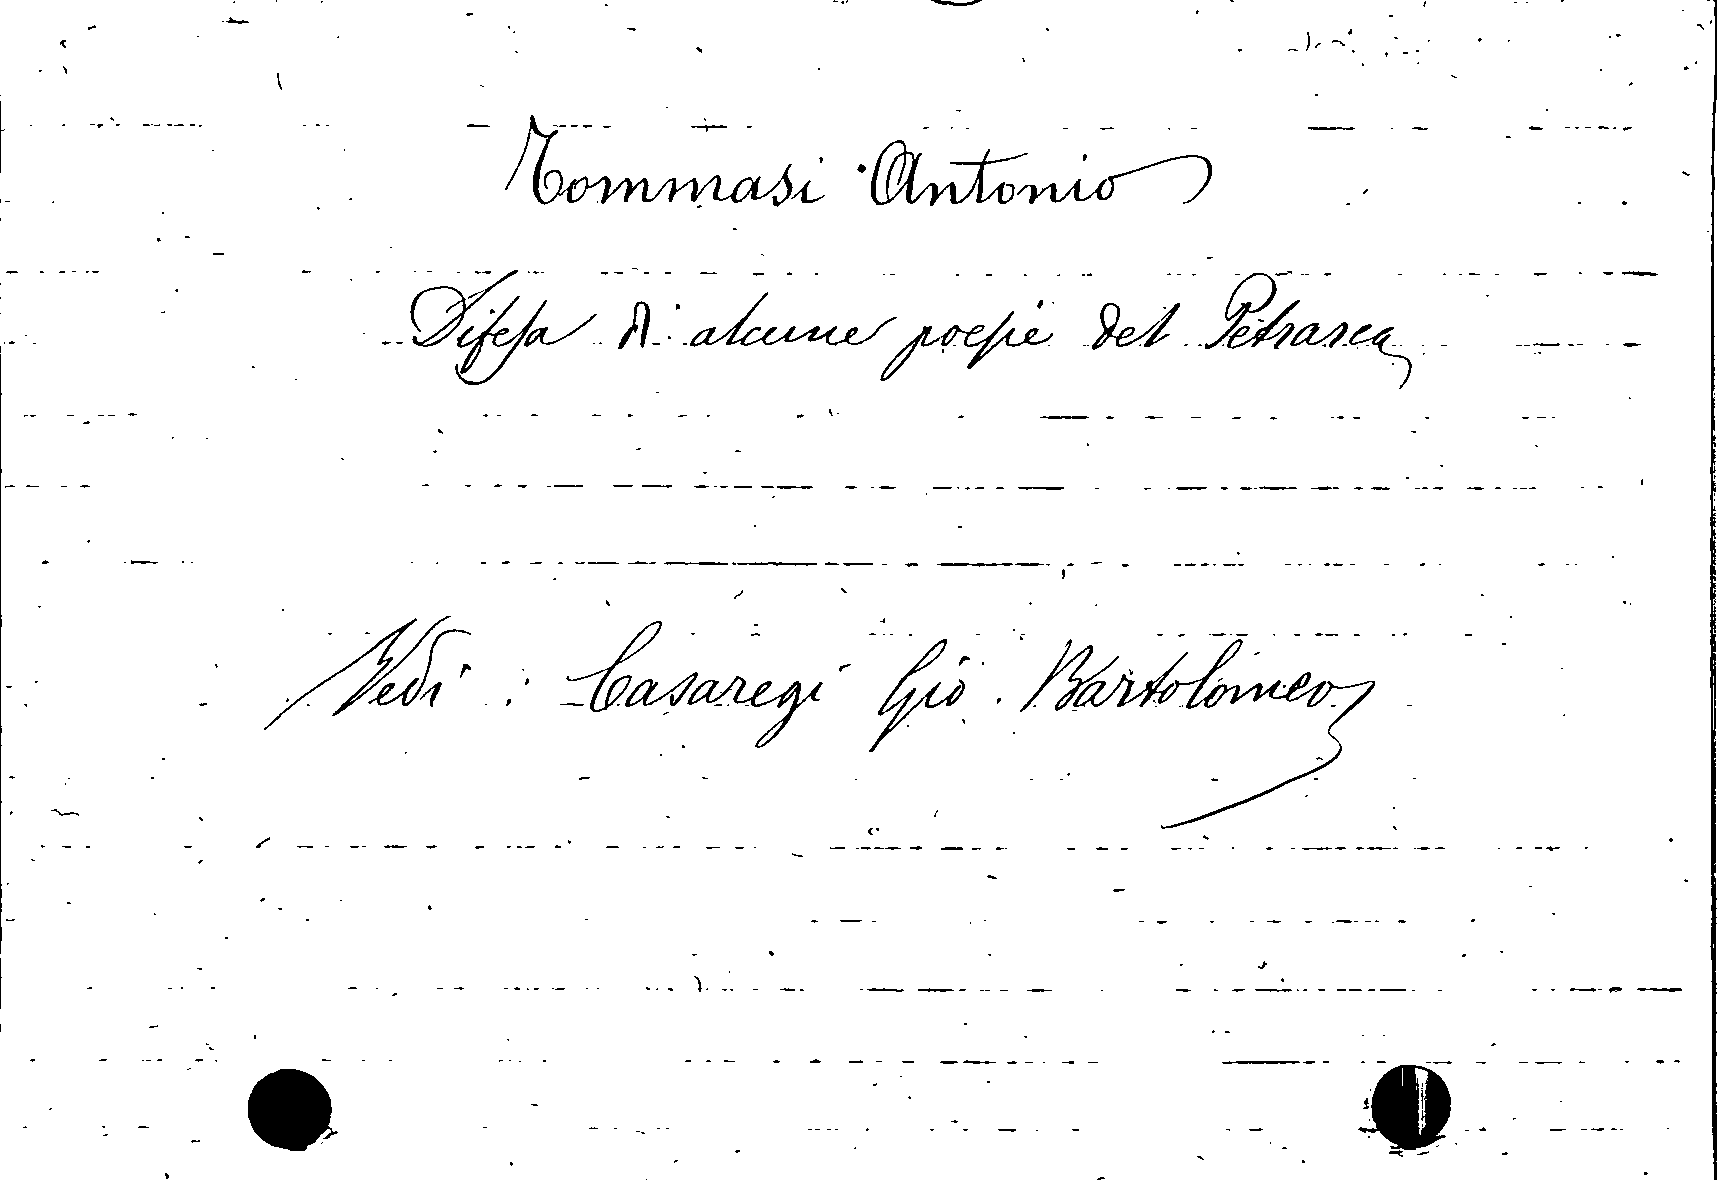 Tommasi Antonio
Difesa di alcune poesie del Petrarca
Vedi : Casaregi Gio. Bartolomeo